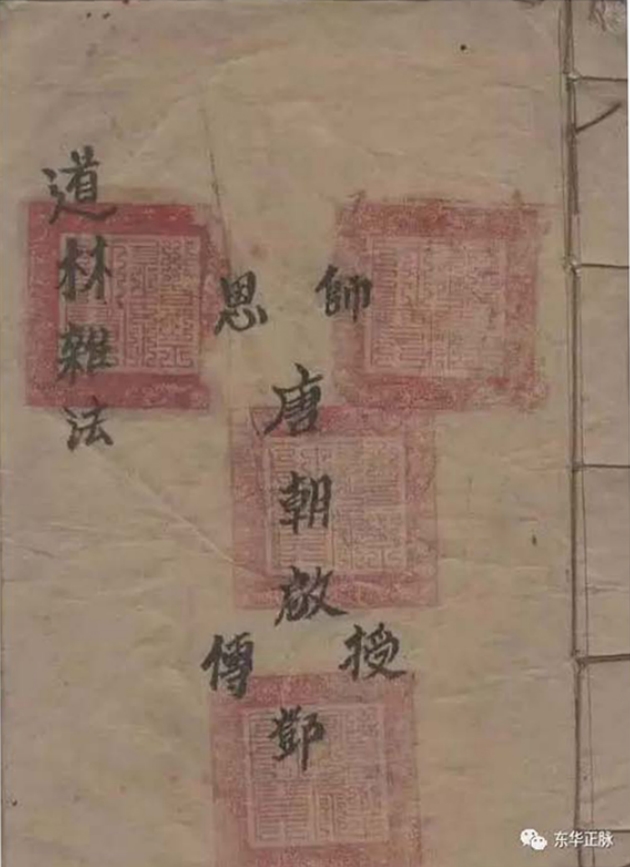 師恩
唐朝啟
授傳
鄧
道林雜法
东华正脉